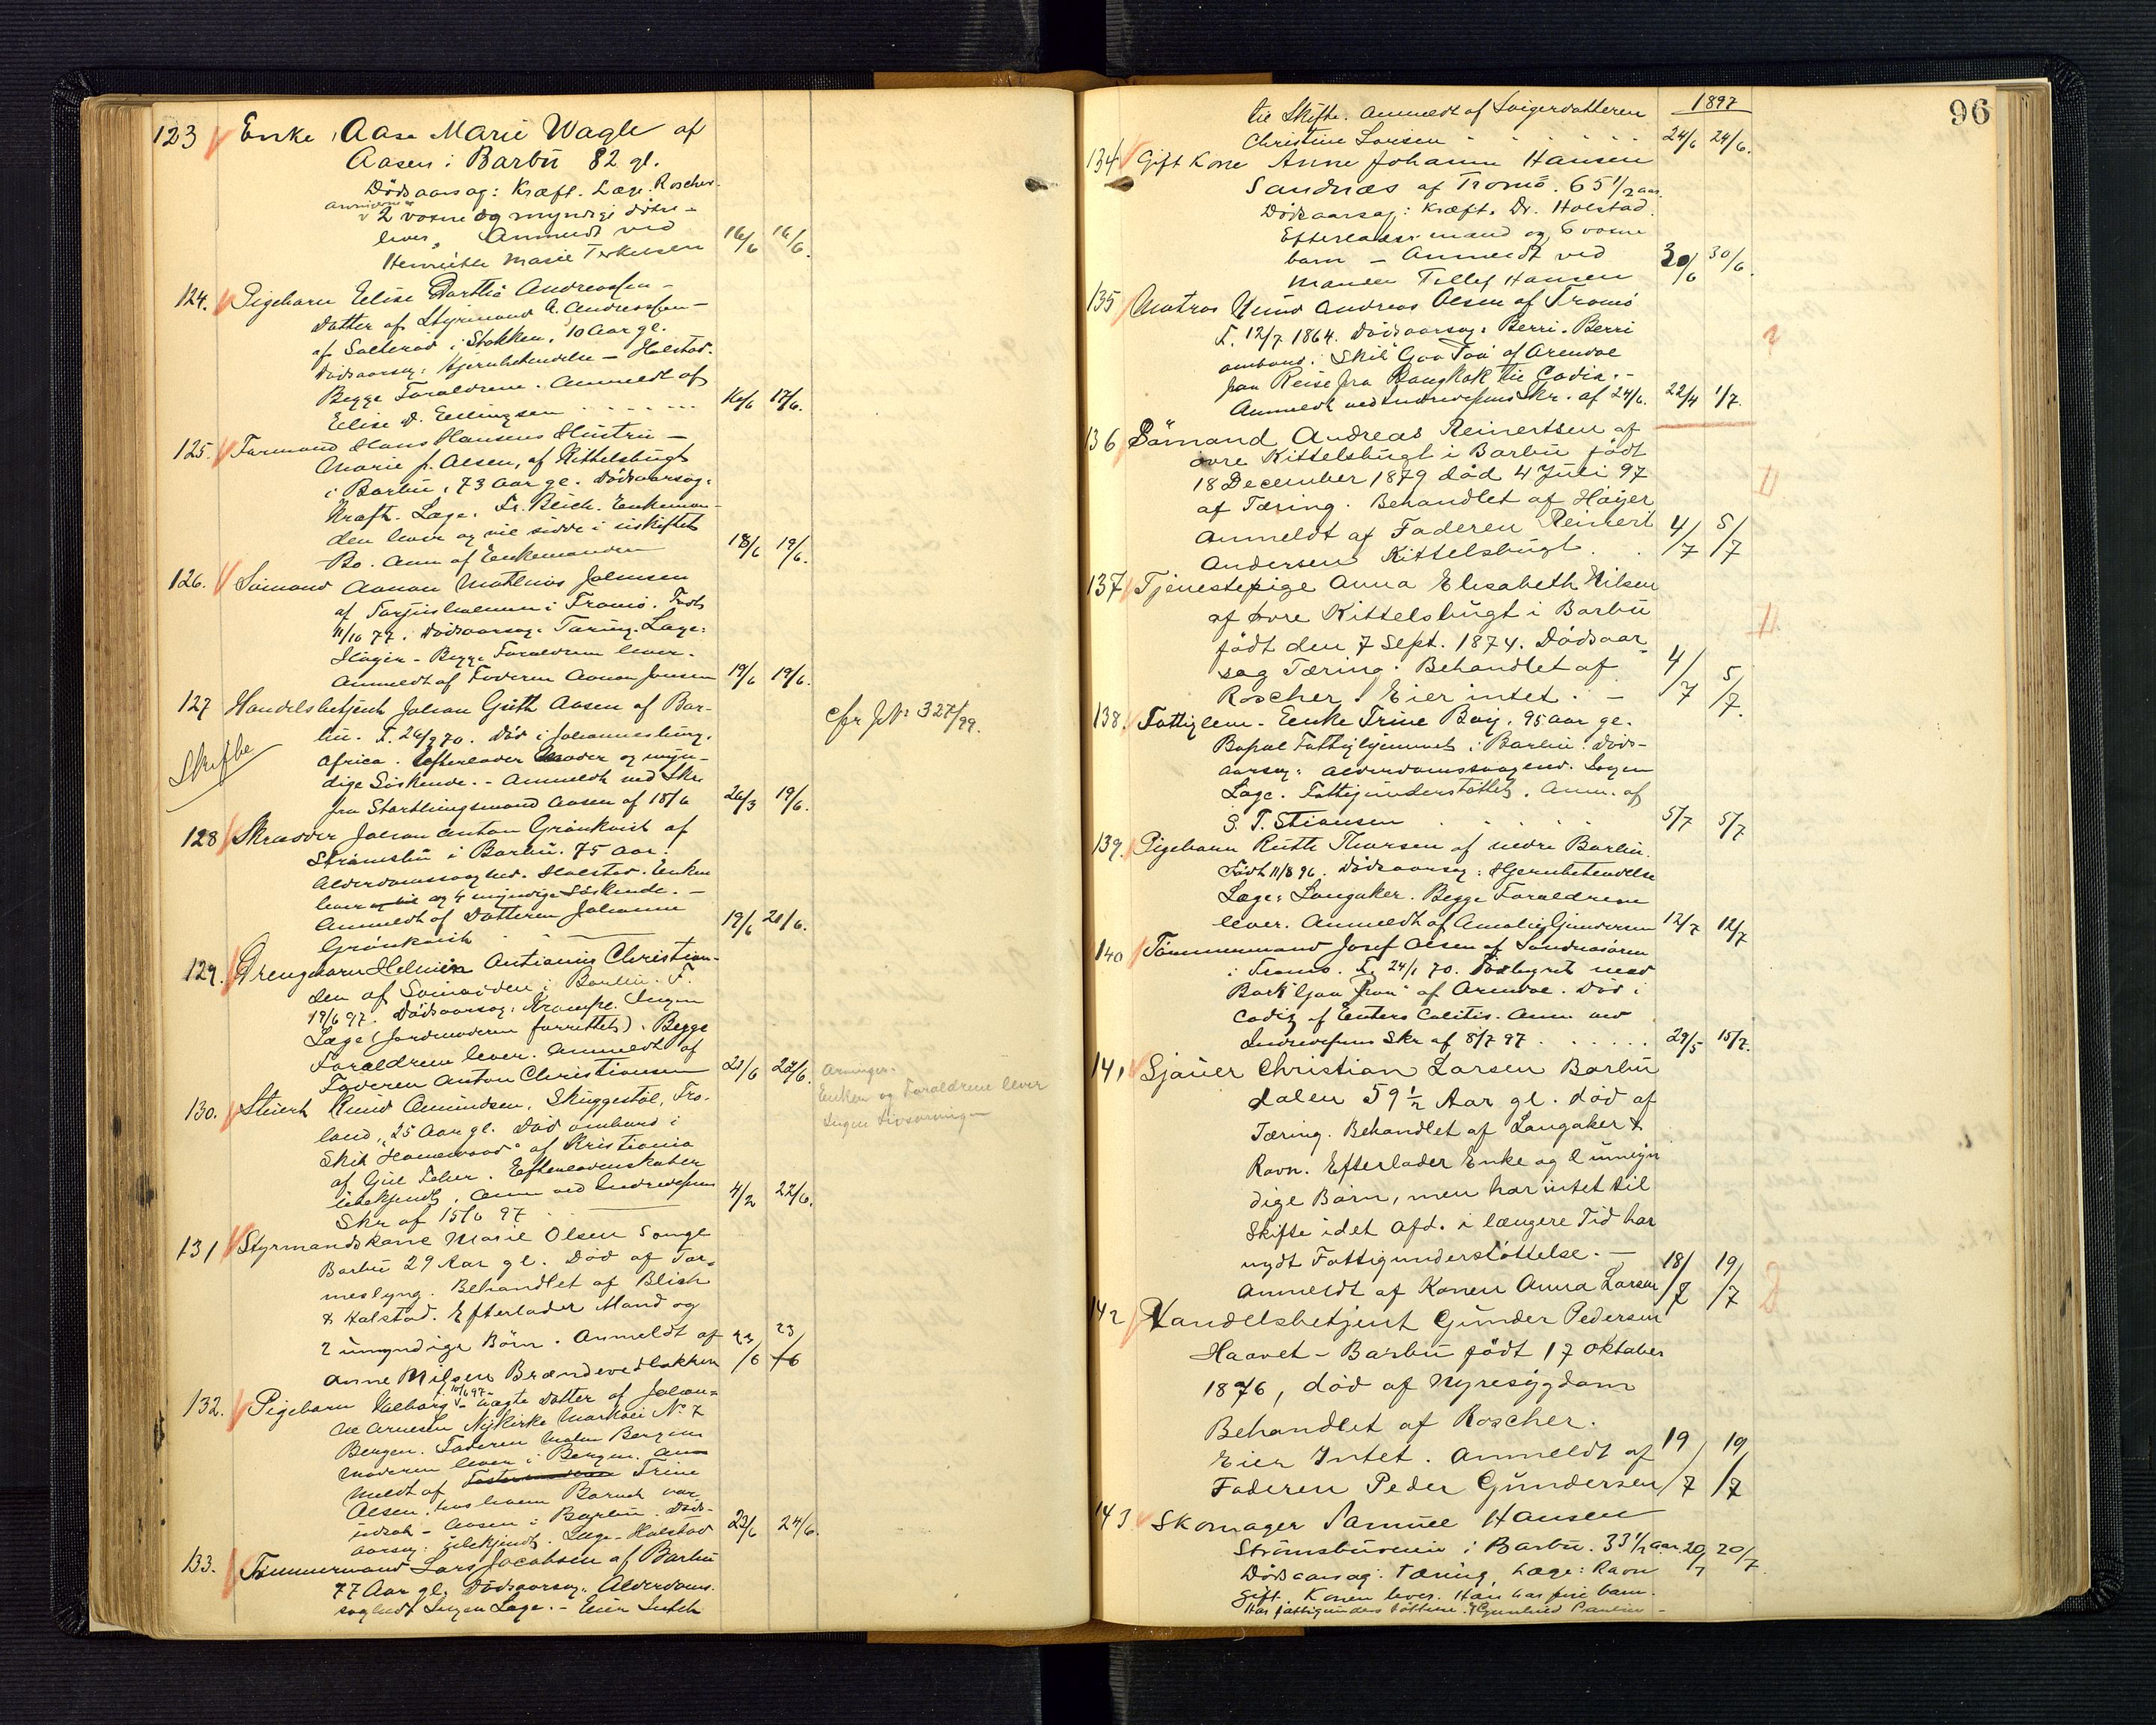 123 Enke Aase Marie Wagle af
Aasen i Barbu 82 gl.
Dødsaarsag: Kræft. Læge. Roscher.
2 voxne og myndige døtre
lever. Anmeldt ved
Henriette Marie Terkelsen 16/6 16/6.
124. Pigebarn Elise Dorthea Andreassen -
Datter af Styrmand A. Andreassen -
af Salterød i Stokken, 10 Aar gl.
Dødsaarsag: Hjernebetendelse - Holstad.
Begge Forældrene. Anmeldt af
Elise D. Ellingsen 16/6 17/6.
125. Formand Hans Hansens Hustru -
Marie f. Olsen, af Kittelsbugt
i Barbu, 73 Aar gl. Dødsaarsag:
Kræft. Læge: Fr. Bleich. Enkeman-
den lever og vil sidde i uskiftet
Bo. Anm af Enkemanden 18/6 19/6.
126. Sømand Aanon Mathias Johnsen
af Torjusholmen i Tromø. Født
11/10 77. Dødsaarsag: Tæring. Læge:
Høyer - Begge Forældrene lever.
Anmeldt af Faderen Aanon Jonsen 19/6 19/6.
127 Handelsbetjent Johan Guth Aasen af Bar-
bu. F. 26/9 70. Død i Johannesburg,
Africa. Efterlader Moder og myn-
dige Søskende. - Anmeldt ved Skr.
fra Aasen af 18/6 26/3 19/6.
Skifte
cfr J.No 327/99.
128 Skrædder Johan Anton Grönkvist af
Strømsbu i Barbu. 75 Aar.
Alderdomssvaghed. Holstad. Enken
lever og 4 myndige Søskende. -
Anmeldt af Datteren Johanne
Grönkvist 19/6 21/6.
129. Drengebarn Helmer Antianus Christian-
sen af i Barbu. F.
19/6 97. Dødsaarsag: Krampe. Ingen
Læge (Jordmoderen forrettet). Begge
Forældrene lever. Anmeldt af
Faderen Anton Christiansen 21/6 22/6.
130. Stuert Knud Omundsen, Skuggestøl, Fro-
land, 25 Aar gl. Død ombord i
Skib "Homewood" af Kristiania
af Gul Feber. Efterladenskaber
ubekjendt. Anm ved Indredepms
Skr af 15/6 97 4/2 22/6.
Arvinger:
Enken og Forældrene lever
Ingen Livsarvinger
131 Styrmandskone Marie Olsen Songe
Barbu 29 Aar gl. Død af Tar-
meslyng. Behandlet af Blich
& Holstad. Efterlader Mand og
2 umyndige Børn. Anmeldt af
Anne Nilsen Brændevedlakken 23/6 23/6
132. Pigebarn Valborg f. 10/6 97 - uægte Datter af Johan-
ne Arnesen Nykirke Markvei No 7
Bergen. Faderen Bergen
Moderen lever i Bergen. An-
meldt af Trine
Olsen, hos hvem Barnet var
indsat - Aasen i Barbu. Døds-
aarsag: ubekjendt. Læge - Holstad 23/6 24/6.
133. Tømmermand Lars Jacobsen af Barbu
77 Aar gl. Dødsaarsag: Alderdoms-
svaghed Ingen Læge. - Eier Intet
96
1897
til Skifte. Anmeldt af Svigerdatteren
Christine Larsen 24/6 24/6.
134 Gift Kone Anne Johanne Hansen
Sandnæs af Tromø. 65 1/2 aar
Dødsaarsag: Kræft. Dr. Holstad.
Efterlader mand og 6 voxne
barn - Anmeldt ved
Manden Tellef Hansen 30/6 30/6.
135 Matros Knud Andreas Olsen af Tromø
F. 12/7 1864. Dødsaarsag: Berri-Berri
ombord i Skib "Gaa Paa" af Arendal
paa Reise fra Bangkok til Cadix. -
Anmeldt ved Indredepms Skr. af 24/6. 22/4 1/7.
136 Sømand Andreas Reinertsen af
øvre Kittelsbugt i Barbu født
18 December 1879 død 4 Juli 97
af Tæring. Behandlet af Høyer
Anmeldt af Faderen Reinert
Andersen Kittelsbugt. 4/7 5/7
137 Tjenestepige Anna Elisabeth Nilsen
af øvre Kittelsbugt i Barbu
født den 7 Sept. 1874. Dødsaar-
sag Tæring. Behandlet af
Roscher. Eier intet. - 4/7 5/7.
138. Fattiglem - Enke Trine Boij. 95 aar gl.
Bopæl Fattighjemmet i Barbu. Døds-
aarsag: Alderdomssvaghed. Ingen
Læge. Fattigunderstøttet. Anm. af
S. T. Stiansen 5/7 5/7
139. Pigebarn Ruth Thorsen af nedre Barbu.
Født 11/8 96. Dødsaarsag: Hjernebetendelse
Læge: Langaker. Begge Forældrene
lever. Anmeldt af Amalie Gundersen 12/7 12/7
140 Tømmermand Josef Olsen af Sandnæsøren
i Tromø. F. 24/1 70. Forhyret med
Bark "Gaa Paa" af Arendal. Død i
Cadiz af Entero Colitis. Anm ved
Indredepms Skr af 8/7 97 29/5 15/7.
141 Sjauer Christian Larsen Barbu
dalen 59 1/2 Aar gl. død af
Tæring. Behandlet af Langaker &
Ravn. Efterlader Enke og 2 umyn
dige Børn, men har intet til
Skifte idet Afd. i længere Tid har
nydt Fattigunderstøttelse. -
Anmeldt af Konen Anna Larsen 18/7 19/7
142 Handelsbetjent Gunder Pedersen
Haavet - Barbu født 17 Oktober
1876, død af Nyresygdom
Behandlet af Roscher.
Eier Intet. Anmeldt af
Faderen Peder Gundersen 19/7 19/7
143. Skomager Samuel Hansen
Strømsbuveien i Barbu. 33 1/2 aar 20/7 20/7.
Dødsaarsag: Tæring, Læge: Ravn
Gift. Konen lever. Han har fire barn.